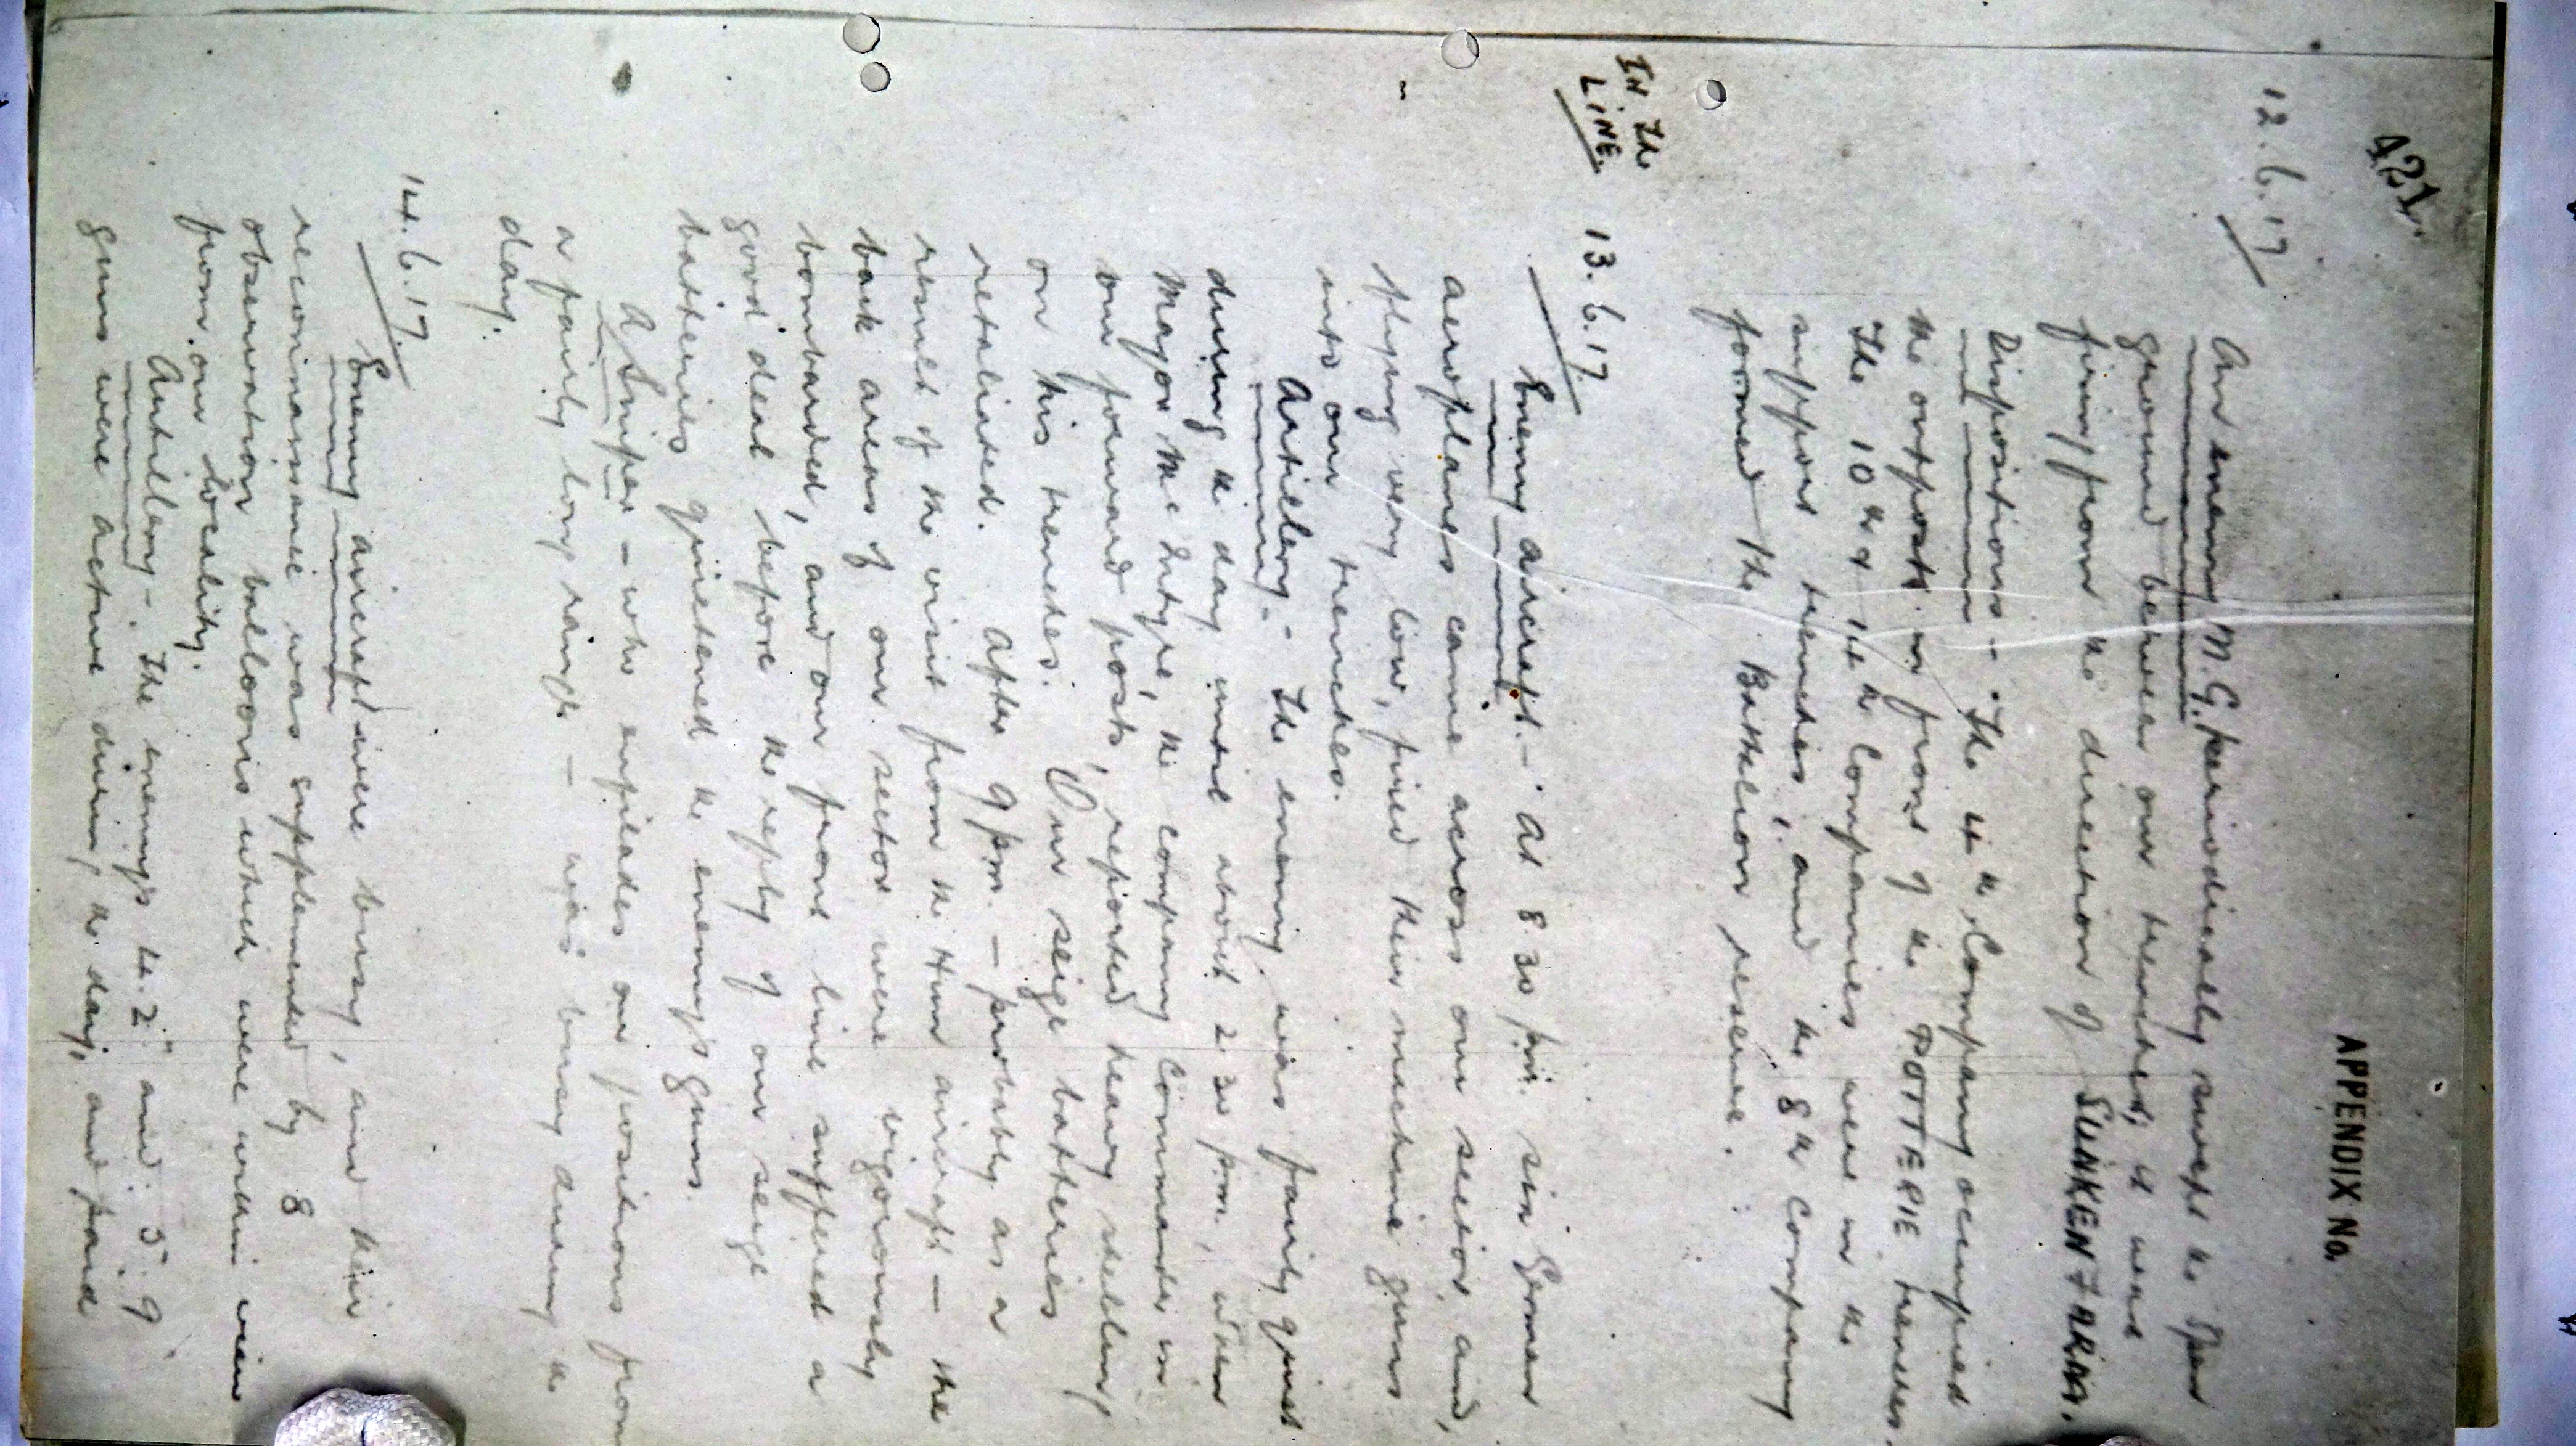 421.
APPENDIX No.
12.6.17
An enemy M.G. periodically swept the open
ground between our trenches, it was
firing from the direction of SUNKEN FARM.
Dispositions - The 4th Company occupied
the outposts in front of the POTTERIE trenches.
The 10th & 14th Companies were in the
support trenches, and the 8th Company
formed the Battalion reserve.
IN The
LINE.
13.6.17.
Enemy aircraft. - At 8 30 pm. six German
aeroplanes came across our sector, and,
flying very low, fired their machine guns
into our trenches.
Artillery - The enemy was fairly quiet
during the day until about 2 30 pm, when
Major Mc Intyre, the company Commander in
our forward posts, reported heavy shelling
on his trenches. Our seige batteries
retaliated. After 9 pm. - probably as a
result of the visit from the Hun aircraft - the
back areas of our sector were vigorously
bombarded, and our front line suffered a
good deal before the reply of our seige
batteries quietened the enemy's guns.
A Sniper - who enfilades our positions from
a fairly long range - was busy during the
day.
14.6.17.
Enemy aircraft were busy, and their
reconnaissance was supplemented by 8
observation balloons which were within view
from our locality.
Artillery - The enemy's 4.2" and 5.9
guns were active during the day, and paid